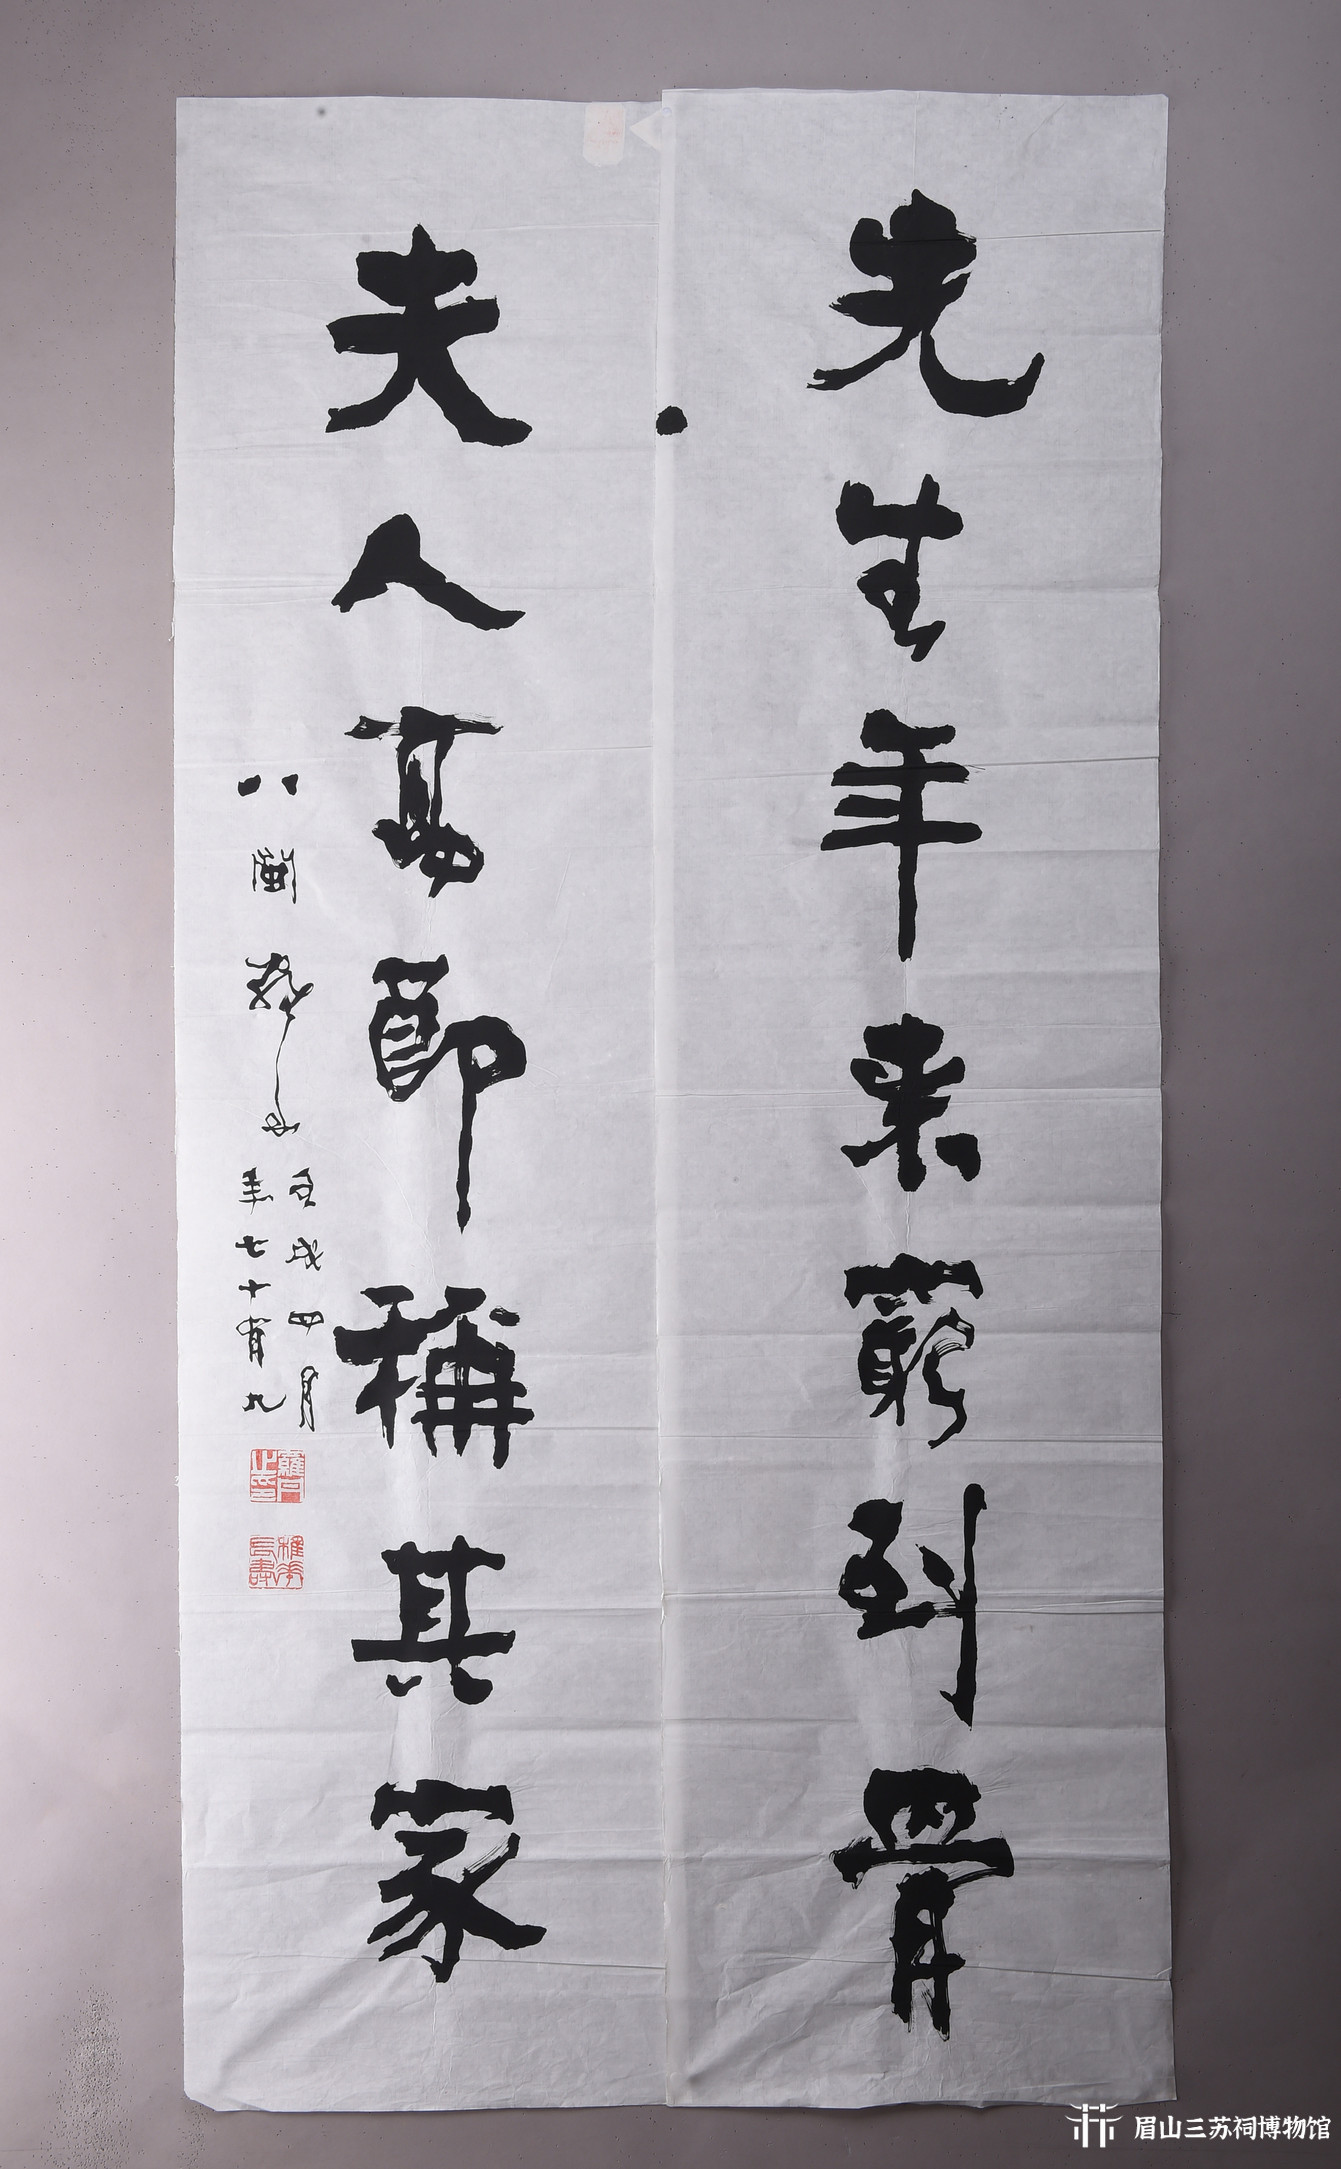 先生年来穷到骨
夫人高節稱其家
八閩
壬戌四月
年七十有九
眉山三苏祠博物馆